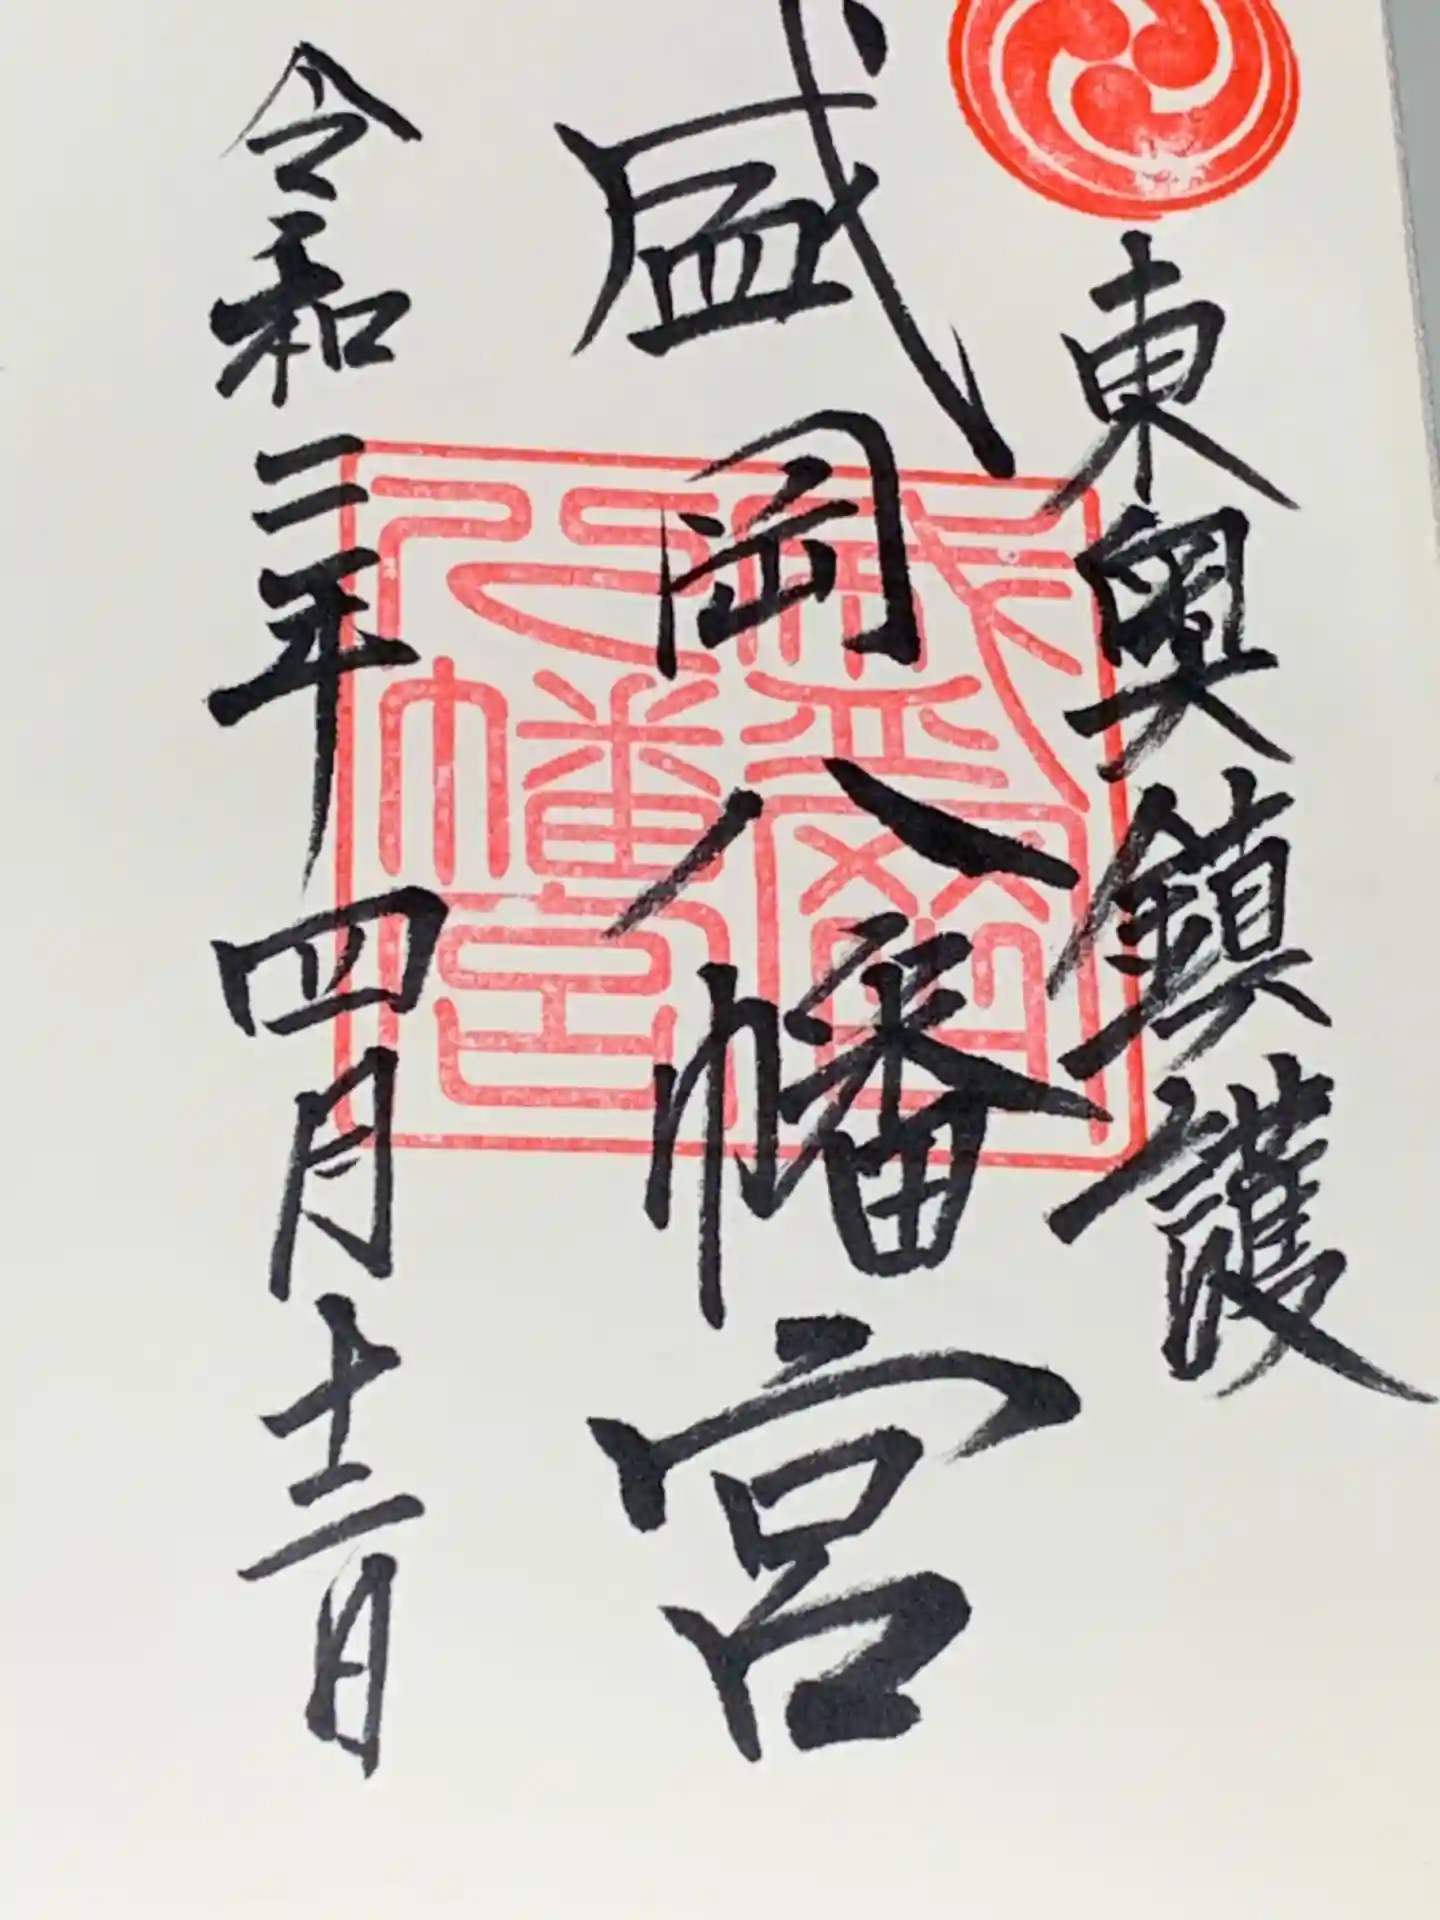 東奥鎮護
盛岡八幡宮
盛岡八幡宮
令和三年四月十二日